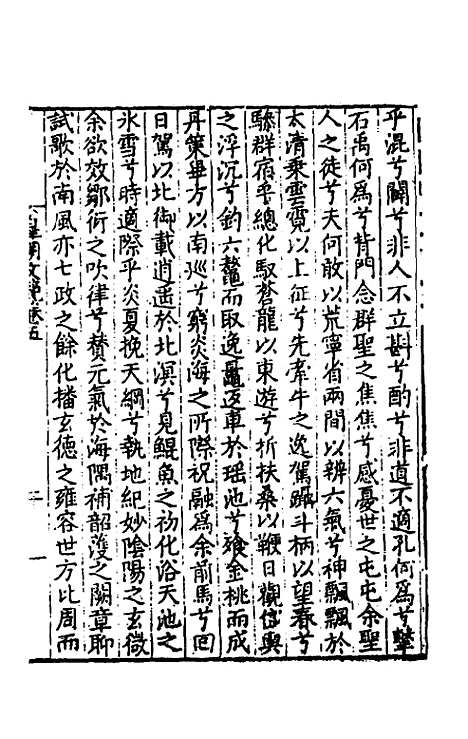 乎混兮闢兮非人不立斟兮酌兮非道不適孔何為兮擊
石禹何為兮背門念群聖之焦焦兮感憂世之屯屯余聖
人之徒兮夫何敢以荒寧省兩間以辨六氣兮神飄飄於
太清乘雲霓以上征兮先牽牛之逸駕躡斗柄以望春兮
驂群宿乎總化馭蒼龍以東遊兮折扶桑以鞭日觀岱輿
之浮沉兮釣六鰲而取逸鼂返車於瑶池兮飱金桃而成
丹策畢方以南巡兮窮炎海之所際祝融為余前馬兮回
日駕以北御載逍遥於北溟兮見鯤魚之初化浴天地之
氷雪兮時適際乎炎夏挽天綱兮執地紀妙陰陽之玄微
余欲效鄒衍之吹律兮賛元氣於海隅補韶濩之闕章聊
試歌於南風亦七政之餘化播玄德之雍容世方比周而
皇朝文 卷五
二